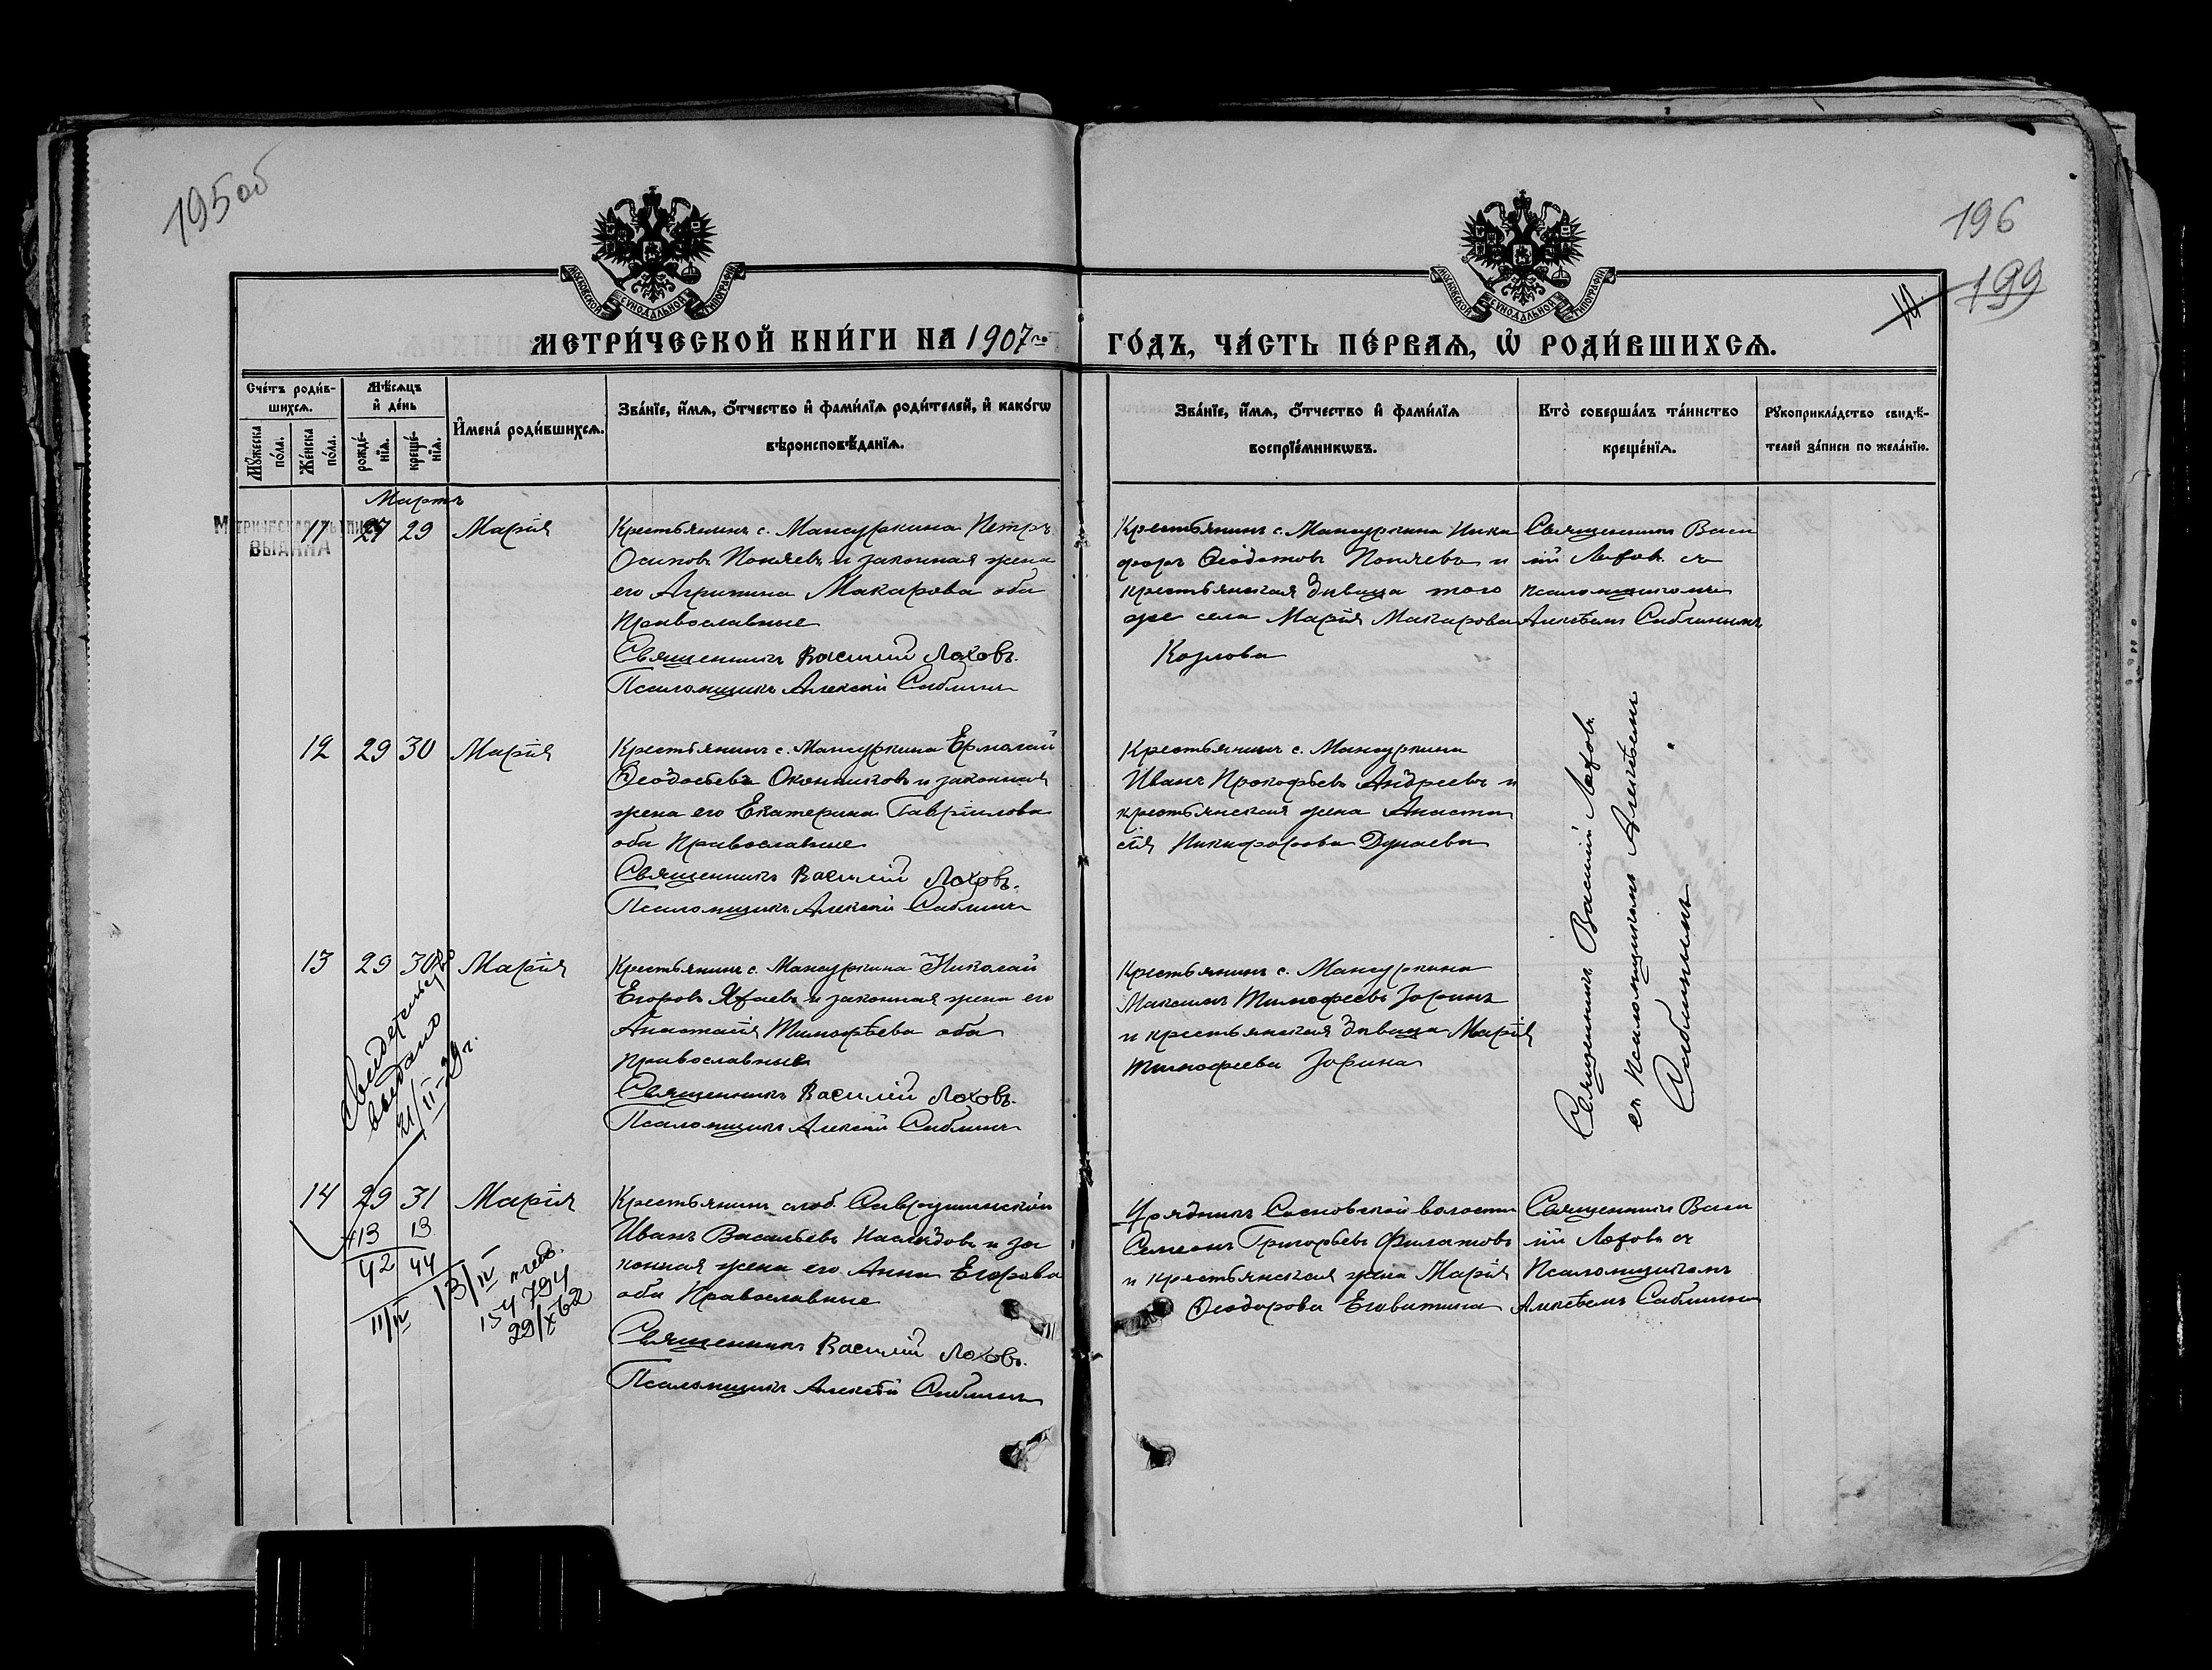 195 об
196
199
МОСКОВСКОЙ СѴНОДАЛЬНОЙ ТИПОГРАФІИ
МОСКОВСКОЙ СѴНОДАЛЬНОЙ ТИПОГРАФІИ
МЕТРИ́ЧЕСКОЙ КНИ́ГИ НА 1907го ГО́ДЪ, ЧА́СТЬ ПЕ́РВАѦ, Ѡ҆ РОДИ́ВШИХСѦ.
Сче́тъ роди́в-
шихсѧ.
Мѣ́сѧцъ
и҆ де́нь
Мꙋ́жеска
по́ла.
Же́нска
по́ла.
рожде́-
нїѧ.
креще́-
нїѧ.
И҆мена̀ роди́вшихсѧ.
Зва́нїе, и҆́мѧ, ѻ҆́тчество и҆ фами́лїѧ роди́телей, и҆ како́гѡ
вѣроисповѣ́данїѧ.
Зва́нїе, и҆́мѧ, ѻ҆́тчество и҆ фами́лїѧ
воспрїе́мникѡвъ.
Кто̀ соверша́лъ та́инство
креще́нїѧ.
Рꙋкоприкла́дство свидѣ́-
телей за́писи по жела́нїю.
Мартъ
МЕТРИЧЕСКАЯ ВЫПИСЬ
ВЫДАНА
11 27 29 Марія
Крестьянинъ с. Мансуркина Петръ
Осиповъ Поняевъ и законная жена
его Агрипина Макарова оба
Православные
Священникъ Василий Лоховъ.
Псаломщикъ Алексій Саблинъ
Крестьянинъ с. Мансуркина Ники
форъ Ѳеодотовъ Поняевъ и
крестьянская дѣвица того
же села Марія Макарова
Козлова
Священникъ Васи
лій Лоховъ съ
псаломщикомъ
Алексѣемъ Саблинымъ
12 29 30 Марія
Крестьянинъ с. Мансуркина Ермолай
Ѳеодосьевъ Оконниковъ и законная
жена его Екатерина Гавріилова
оба Православные
Священникъ Василий Лоховъ.
Псаломщикъ Алексій Саблинъ
Крестьянинъ с. Мансуркина
Иванъ Прокофьевъ Андреевъ и
крестьянская жена Анаста
сія Никифорова Дунаева
Священникъ Василій Лоховъ
съ Псаломщикомъ Алексѣемъ
Саблинымъ
13 29 30 Марія
Крестьянинъ с. Мансуркина Николай
Егоровъ Яфаевъ и законная жена его
Анастасія Тимофѣева оба
Православные
Священникъ Василий Лоховъ.
Псаломщикъ Алексій Саблинъ
Крестьянинъ с. Мансуркина
Максимъ Тимофеевъ Зоринъ
и крестьянская дѣвица Марія
Тимофеева Зорина
Свидетельство
выдано
21/II-29 г.
14 29 31 Марія
+13 13
42 44
11/IV 13/IV
154794
29/X 62
Крестьянинъ слоб. Саврушинской
Иванъ Васильевъ Наслѣдовъ и за
конная жена его Анна Егорова
оба Православные
Священникъ Василий Лоховъ.
Псаломщикъ Алексѣй Саблинъ
Урядникъ Сосновской волости
Симеонъ Григорьевъ Филатовъ
и крестьянская жена Марія
Ѳеодорова
Священникъ Васи
лій Лоховъ съ
Псаломщикомъ
Алексѣемъ Саблинымъ